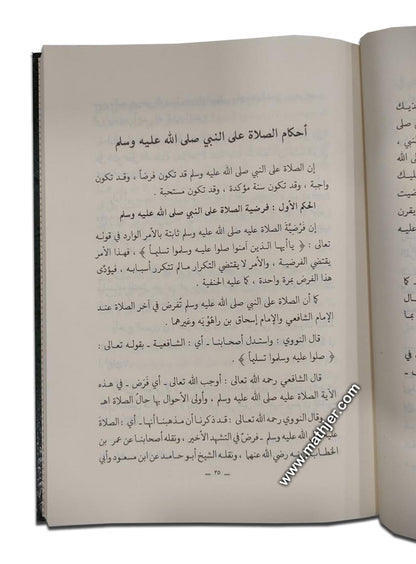 أحكام الصلاة على النبي صلى الله عليه وسلم
إن الصلاة على النبي صلى الله عليه وسلم قد تكون فرضاً ، وقد تكون
واجبة ، وقد تكون سنة مؤكدة ، وقد تكون مستحبة .
الحكم الأول : فرضية الصلاة على النبي صلى الله عليه وسلم
إن فرْضيَّة الصلاة عليه صلى الله عليه وسلم ثابتة بالأمر الوارد في قوله
تعالى : ﴿ يا أيها الذين آمنوا صلوا عليه وسلموا تسليماً ﴾ ، فهذا الأمر
يقتضي الفرضية ، والأمر لا يقتضي التكرار مالم تتكرر أسبابه ، فيؤدَّى
هذا الفرض بمرة واحدة ، كما عليه الحنفية .
كما أن الصلاة على النبي صلى الله عليه وسلم تُفرض في آخر الصلاة عند
الإمام الشافعي والإمام إسحاق بن راهُوْيَه وغيرهما .
قال النووي : واستدل أصحابنا ـ أي : الشافعية ـ بقوله تعالى :
﴿ صلوا عليه وسلموا تسليماً ﴾ .
قال الشافعي رحمه الله تعالى : أوجب الله تعالى ـ أي فَرَض ـ في هذه
الآية الصلاة عليه صلى الله عليه وسلم ، وأولى الأحوال بها حالُ الصلاة اهـ
وقال النووي رحمه الله تعالى : قد ذكرنا أن مذهبنا أنها ـ أي : الصلاة
الله عليه وسلم ـ فرضٌ في التشهد الأخير ، ونقله أصحابنا عن عمر بن
رضي الله عنهما ، ونقله الشيخ أبو حامد عن ابن مسعود وأبي
ـ ٢٥ ـ
www.mathjer.com